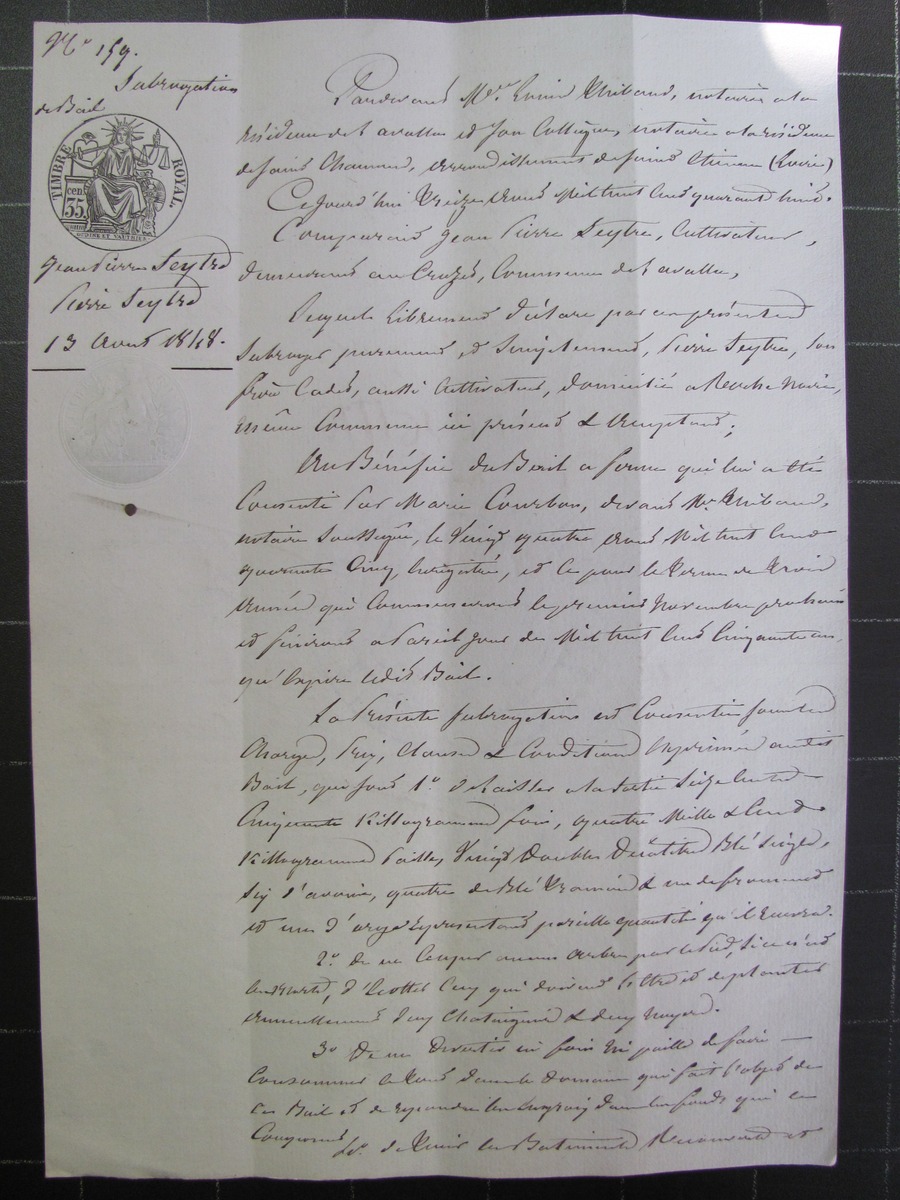 N° 159.
Subrogation
de Bail
TIMBRE ROYAL.
35 cen
Jean Pierre Seytre
Pierre Seytre
13 Avril 1848.
Pardevant Me Thibaud, notaire à la
résidence de Lavalla et son Collègue, notaire à la résidence
de Saint Chamond, arrondissement de Saint Etienne (Loire)
Cejourd'hui treize Avril Mil huit cent quarante huit.
Comparait Jean Pierre Seytre, Cultivateur,
demeurant au Cruzet, Commune de Lavalla,
Lequel librement déclare par ces présentes
Subroger purement et Simplement, Pierre Seytre, son
frère Cadet, aussi Cultivateur, domicilié à Roche Noire,
même Commune ici présent & acceptant;
Au Bénéfice du Bail a ferme qui lui a été
Consenti Par Marie Courbon, devant Me Thibaud,
notaire Soussigné, le Vingt quatre Avril Mil huit Cent
quarante Cinq, Enregistré, et Ce pour le terme de trois
Années qui Commenceront le premier Novembre prochain
et finiront à Pareil Jour de Mil huit Cent Cinquante un,
qu'Expire ledit Bail.
La Présente Subrogation est Consentie sous les
Charges, Prix, Clauses & Conditions Exprimées audit
Bail, qui sont 1° de laisser à la Sortie Seize Cents
Cinquante Killogrammes foin, quatre Mille & Cent
Killogrammes Paille, Vingt doubles Décalitres Blé Seigle,
Six d'avoine, quatre de Blé Tramois & un de froment
et un d'orge représentant pareille quantité qu'il Recevra.
2° de ne Couper aucun Arbre par le Pied, Si ce n'est
qui doivent l'être et de planter
annuellement deux Chataigniers & deux Noyers.
3° De ne Divertir ni foin ni paille de faire
Consommer le tout dans le domaine qui fait l'objet de
Ce Bail et de repandre les Engrais dans les fonds qui le
Composent
4° de tenir les Batiments Recouverts et